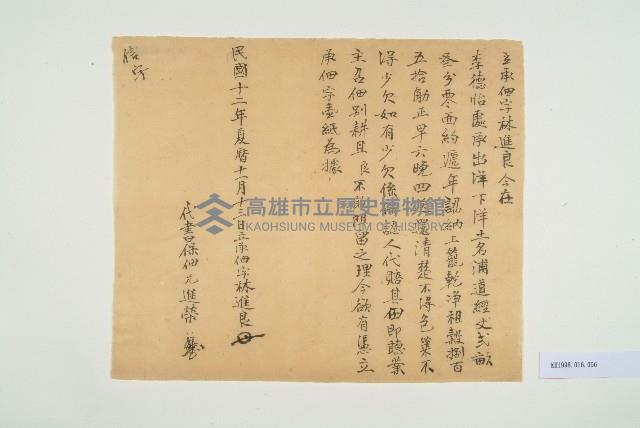 立承佃字林進良今在
李德怡處承出洋下洋土名浦道經丈弍畝
叁分零面約遞年認納上籠乾净租穀捌百
五拾觔正早六晚四 還清楚不得色業不
得少欠如有少欠係保認人代賠其田即聽業
主召佃別耕且良不 阻留之理今欲有憑立
承佃字壹紙為據
民國十二年夏曆十一月十三日立承佃字林進良
代書保佃元進榮
高雄市立歷史博物館
KAOHSIUNG MUSEUM OF HISTORY
KH1998.016.056